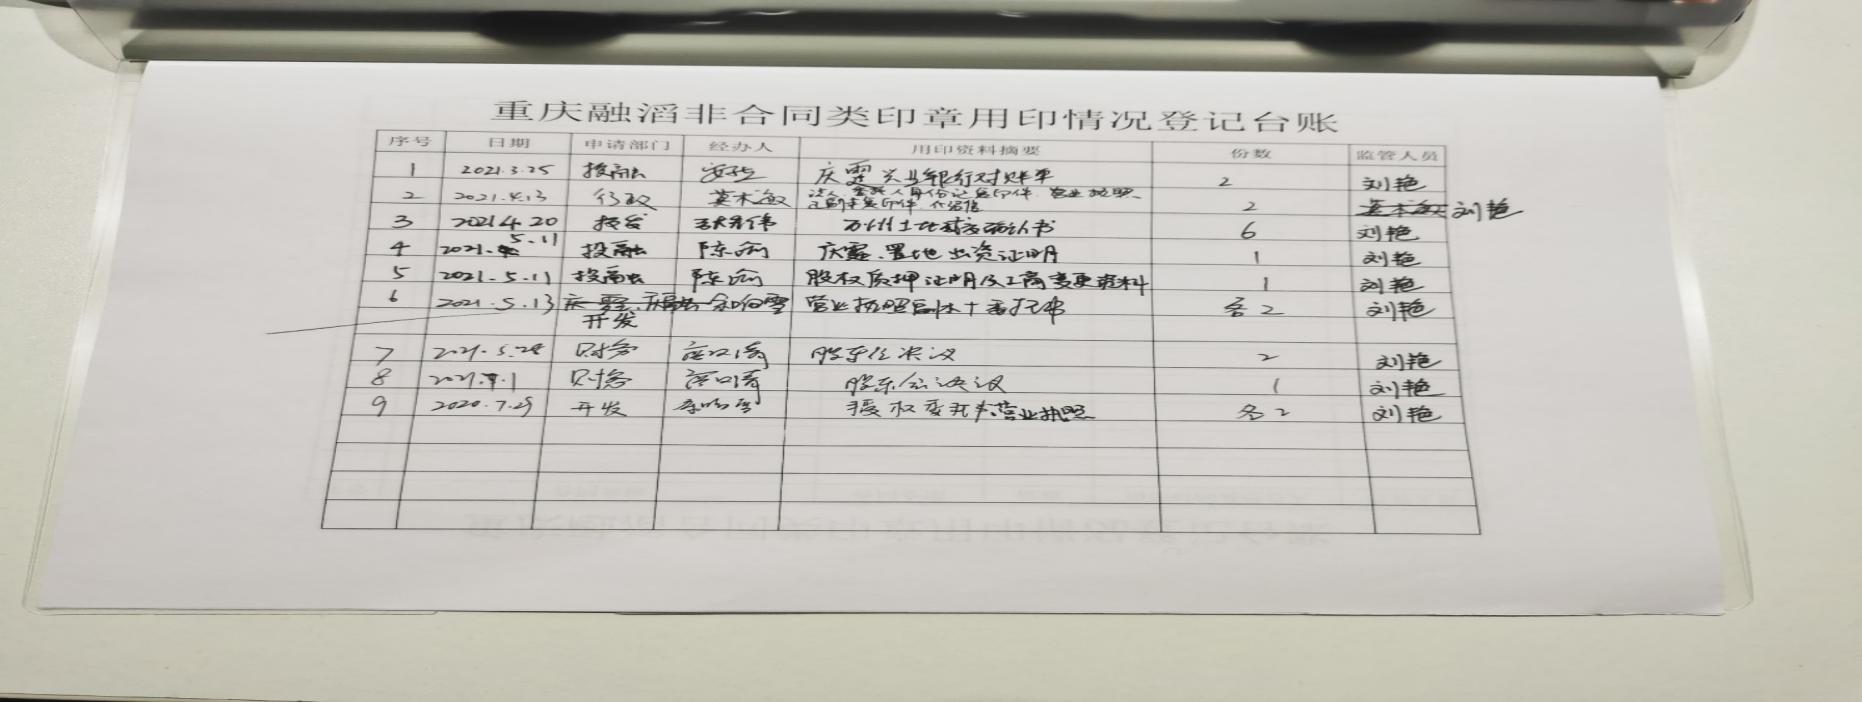 重庆融滔非合同类印章用印情况登记台账
序号 日期 申请部门 经办人 用印资料摘要 份数 监管人员
1 2021.3.25 投融 庆霆兴业银行对账单 2 刘艳
2 2021.4.13 行政 莫木海 法人 身份证复印件 营业执照 2 刘艳
正副本复印件 介绍信
3 2021.4.20 伟 万州土地成交确认书 6 刘艳
4 2021.5.11 投融 陈渝 庆霆、置地出资证明 1 刘艳
5 2021.5.11 投融 陈渝 股权质押证明及工商变更资料 1 刘艳
6 2021.5.13 余向雪 营业执照副本+委托书 各2 刘艳
开发
7 2021.5.28 财务 股东会决议 2 刘艳
8 2021.7.1 财务 股东会决议 1 刘艳
9 2020.7.29 开发 授权委托书 营业执照 各2 刘艳